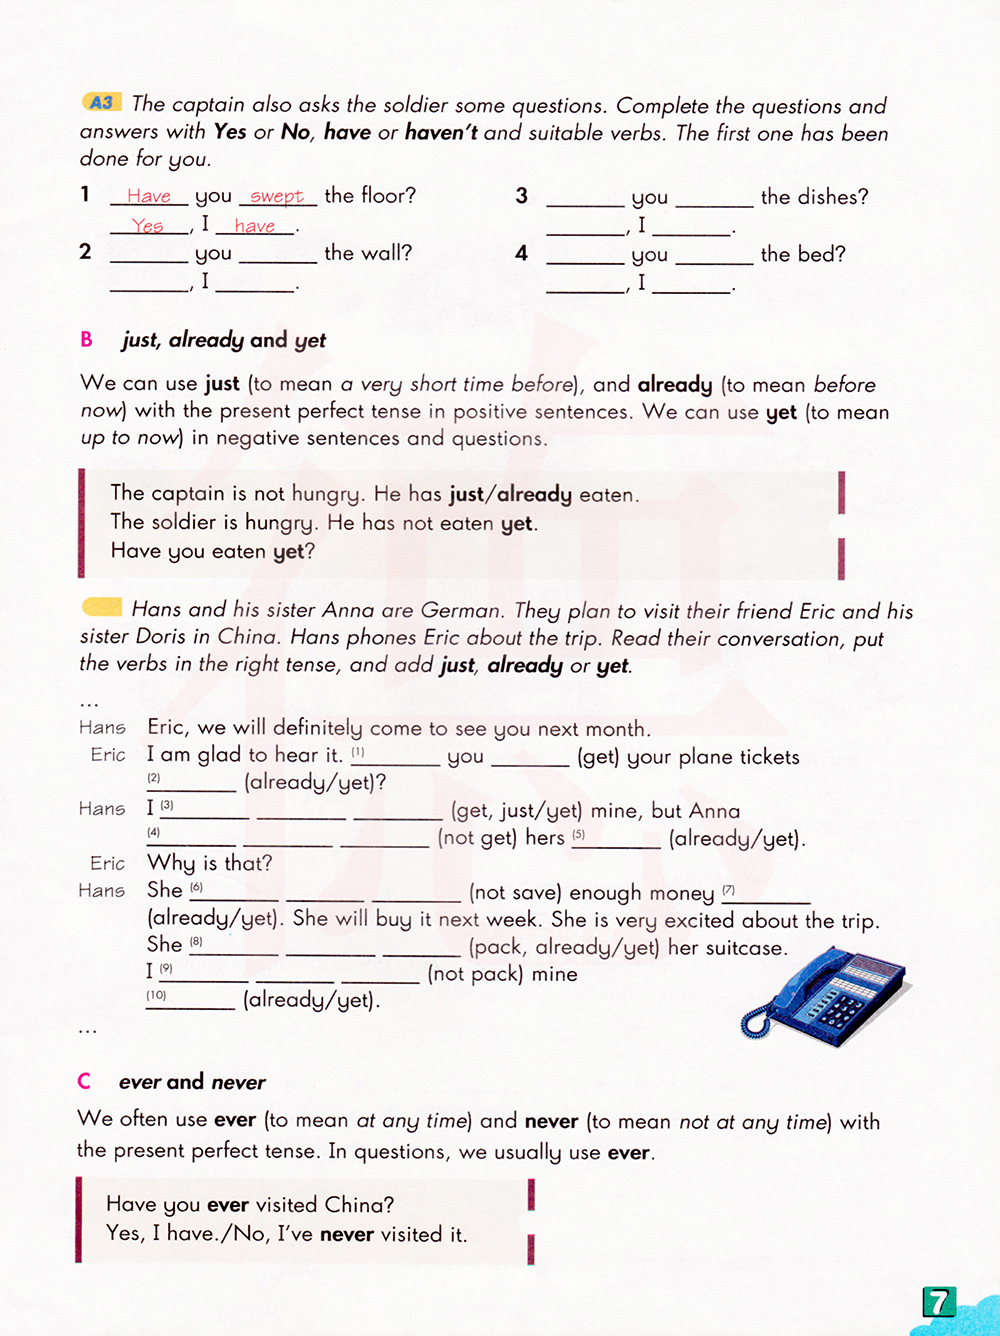 A3 The captain also asks the soldier some questions. Complete the questions and
answers with Yes or No, have or haven't and suitable verbs. The first one has been
done for you.
1 Have you swept the floor?
Yes, I have.
2 ________ you ________ the wall?
________, I ________.
3 ________ you ________ the dishes?
________, I ________.
4 ________ you ________ the bed?
________, I ________.
B just, already and yet
We can use just (to mean a very short time before), and already (to mean before
now) with the present perfect tense in positive sentences. We can use yet (to mean
up to now) in negative sentences and questions.
The captain is not hungry. He has just/already eaten.
The soldier is hungry. He has not eaten yet.
Have you eaten yet?
Hans and his sister Anna are German. They plan to visit their friend Eric and his
sister Doris in China. Hans phones Eric about the trip. Read their conversation, put
the verbs in the right tense, and add just, already or yet.
...
Hans Eric, we will definitely come to see you next month.
Eric I am glad to hear it. (1) ________ you ________ (get) your plane tickets
(2) ________ (already/yet)?
Hans I (3) ________ ________ ________ (get, just/yet) mine, but Anna
(4) ________ ________ ________ (not get) hers (5) ________ (already/yet).
Eric Why is that?
Hans She (6) ________ ________ ________ (not save) enough money (7) ________
(already/yet). She will buy it next week. She is very excited about the trip.
She (8) ________ ________ ________ (pack, already/yet) her suitcase.
I (9) ________ ________ ________ (not pack) mine
(10) ________ (already/yet).
...
C ever and never
We often use ever (to mean at any time) and never (to mean not at any time) with
the present perfect tense. In questions, we usually use ever.
Have you ever visited China?
Yes, I have./No, I've never visited it.
7